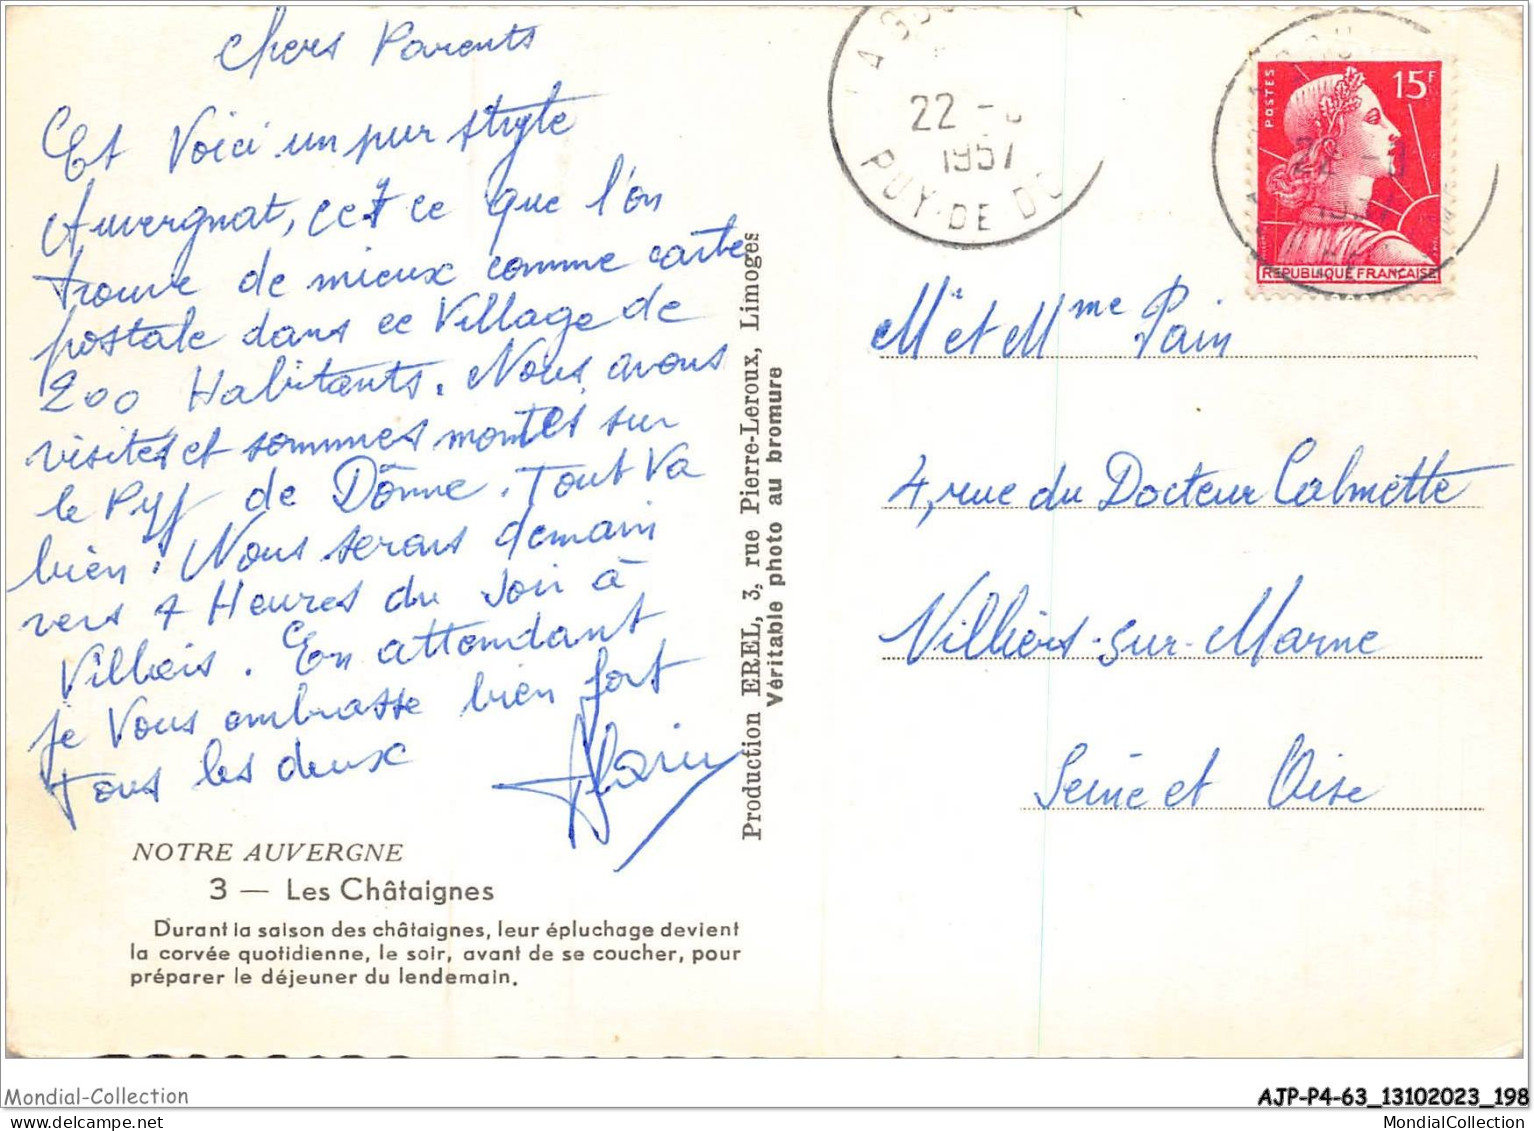 Chers Parents
Et Voici un pur style
Auvergnat, cet ce que l'on
trouve de mieux comme carte
postale dans ce Village de
200 Habitants. Nous avons
visités et sommes montés sur
le Pyf de Dônne. Tout Va
bien. Nous serons demain
vers 7 Heures du soir à
Villiers. En attendant
je Vous embrasse bien fort
Tous les deux
Alain
NOTRE AUVERGNE
3 — Les Châtaignes
Durant la saison des châtaignes, leur épluchage devient
la corvée quotidienne, le soir, avant de se coucher, pour
préparer le déjeuner du lendemain.
Production EREL, 3, rue Pierre-Leroux, Limoges
Véritable photo au bromure
22 -
1957
PUY-DE DO
POSTES
15F
REPUBLIQUE FRANÇAISE
Mr et Mme Pain
4, rue du Docteur Calmette
Villiers-sur-Marne
Seine et Oise
Mondial-Collection
AJP-P4-63_13102023_198
MondialCollection